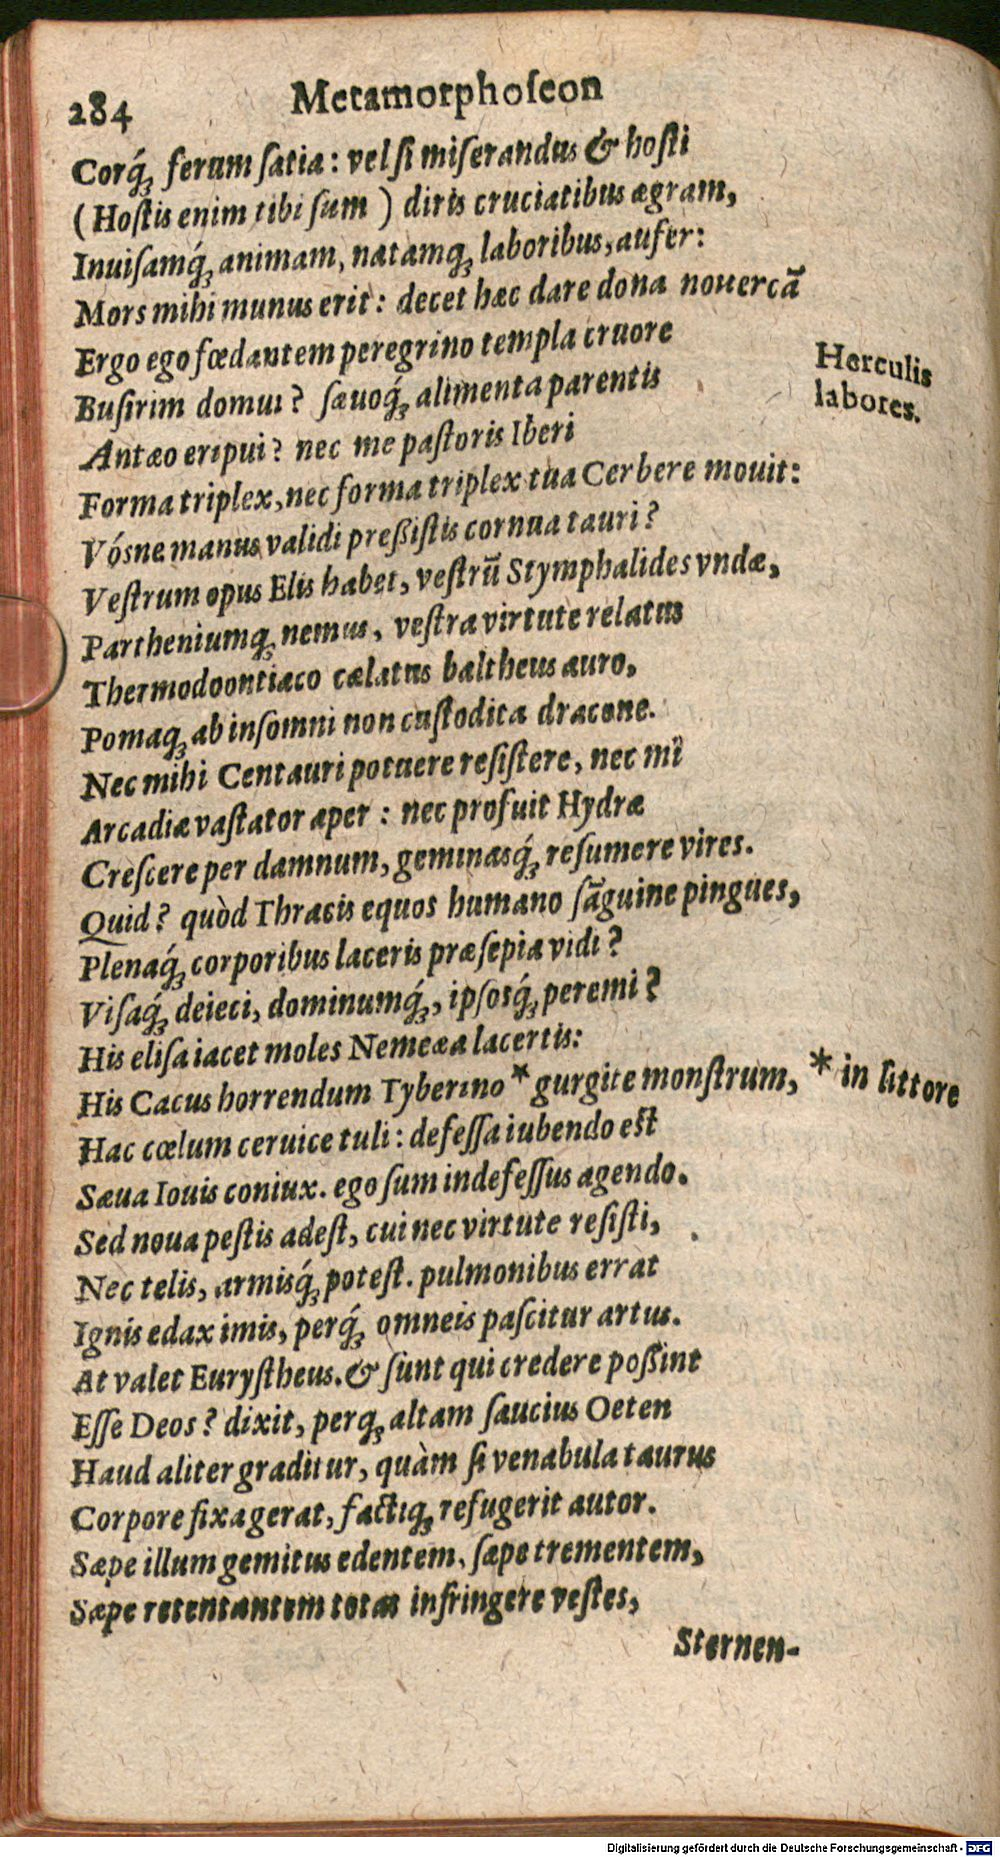 284 Metamorphoſeon
Corq́; ferum ſatia: vel ſi miſerandus & hoſti
(Hoſtis enim tibi ſum) diris cruciatibus ægram,
Inuiſamq́; animam, natamq; laboribus, aufer:
Mors mihi munus erit: decet hæc dare dona nouercā
Ergo ego fœdantem peregrino templa cruore
Buſirim domui? ſæuoq́; alimenta parentis
Antæo eripui? nec me paſtoris Iberi
Forma triplex, nec forma triplex tua Cerbere mouit:
Vósne manus validi preßiſtis cornua tauri?
Veſtrum opus Elis habet, veſtrū Stymphalides vndæ,
Partheniumq; nemus, veſtra virtute relatus
Thermodoontiaco cælatus baltheus auro,
Pomaq; ab inſomni non cuſtodita dracone.
Nec mihi Centauri potuere reſiſtere, nec mî
Arcadiæ vaſtator aper: nec profuit Hydræ
Creſcere per damnum, geminasq́; reſumere vires.
Quid? quòd Thracis equos humano ſāguine pingues,
Plenaq́; corporibus laceris præſepia vidi?
Viſaq́; deieci, dominumq́;, ipſosq́; peremi?
His eliſa iacet moles Nemeæa lacertis:
His Cacus horrendum Tyberino * gurgite monſtrum,
Hac cœlum ceruice tuli: defeſſa iubendo eſt
Sæua Iouis coniux. ego ſum indefeſſus agendo.
Sed noua peſtis adeſt, cui nec virtute reſiſti,
Nec telis, armisq́; poteſt. pulmonibus errat
Ignis edax imis, perq́; omneis paſcitur artus.
At valet Euryſtheus. & ſunt qui credere poßint
Eſſe Deos? dixit, perq; altam ſaucius Oeten
Haud aliter graditur, quàm ſi venabula taurus
Corpore fixa gerat, factiq; refugerit autor.
Sæpe illum gemitus edentem, ſæpe trementem,
Sæpe retentantem totas infringere veſtes,
Sternen-
Herculis
labores.
* in littore
Digitalisierung gefördert durch die Deutsche Forschungsgemeinschaft - DFG